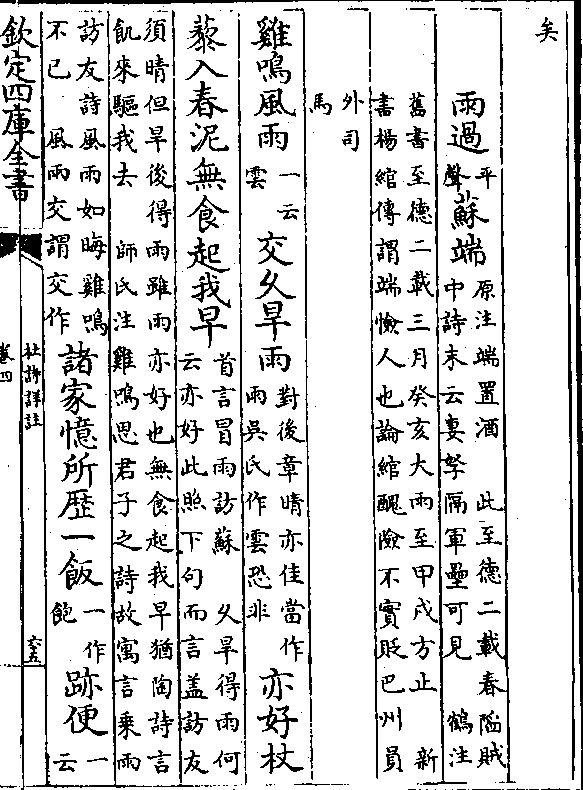 矣
雨過平聲蘇端原注端置酒 此至德二載春陷賊
中詩末云妻孥隔軍壘可見 鶴注
舊書至德二載三月癸亥大雨至甲戌方止 新
書楊綰傳謂端憸人也論綰醜險不實貶巴州員
外司
馬
雞鳴風雨一云雲交久旱雨對後章晴亦佳當作
雨吳氏作雲恐非亦好杖
藜入春泥無食起我早首言冒雨訪蘇 久旱得雨何
云亦好此照下句而言盖訪友
須晴但旱後得雨雖雨亦好也無食起我早猶陶詩言
飢來驅我去 師氏注雞鳴思君子之詩故寓言乘雨
訪友詩風雨如晦雞鳴
不已 風雨交謂交作諸家憶所歴一飯一作飽跡便一云
欽定四庫全書
杜詩詳註
卷四
六五